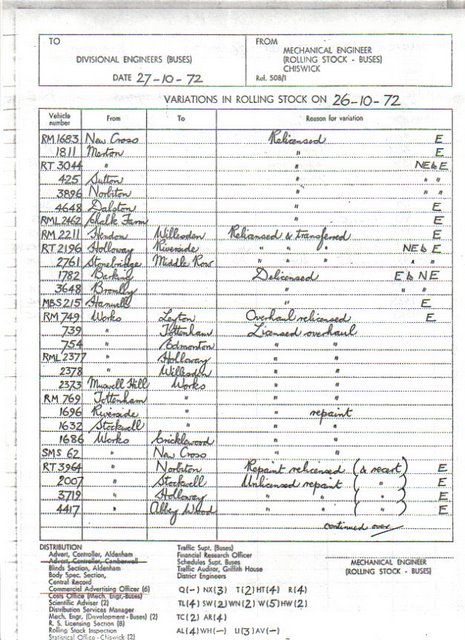 TO
DIVISIONAL ENGINEERS (BUSES)
DATE 27-10-72
FROM
MECHANICAL ENGINEER
(ROLLING STOCK - BUSES)
CHISWICK
Ref. 508/1
VARIATIONS IN ROLLING STOCK ON 26-10-72
Vehicle number From To Reason for variation
RM 1683 New Cross Relicensed E
1811 Merton " E
RT 3044 " " NE & E
425 Sutton " " "
3896 Norbiton " " "
4648 Dalston " E
RML 2462 Chalk Farm " E
RM 2211 Hendon Willesden Relicensed & transferred E
RT 2196 Holloway Riverside " " " NE & E
2761 Stonebridge Middle Row " " " " "
1782 Barking Delicensed E & NE
3648 Bromley " " "
MBS 215 Hanwell " E
RM 749 Works Leyton Overhaul relicensed E
739 " Tottenham Licensed overhaul
754 " Edmonton " "
RML 2377 " Holloway " "
2378 " Willesden " "
2373 Muswell Hill Works " "
RM 769 Tottenham " " "
1696 Riverside " " repaint
1632 Stockwell " " "
1686 Works Cricklewood " "
SMS 62 " New Cross " "
RT 3964 " Norbiton Repaint relicensed (& recert) E
2007 " Stockwell Unlicensed repaint ( " ) E
3719 " Holloway " " ( " ) E
4417 " Abbey Wood " " ( " ) E
continued over
DISTRIBUTION
Advert, Controller, Aldenham
Advert, Controller, Camberwell
Blinds Section, Aldenham
Body Spec. Section,
Central Record
Commercial Advertising Officer (6)
Costs Office (Mech. Engr.-Buses)
Scientific Adviser (2)
Distribution Services Manager
Mech. Engr. (Development - Buses) (2)
R. S. Licensing Section (8)
Rolling Stock Inspection
Statistical Office - Chiswick (2)
Traffic Supt. (Buses)
Financial Research Officer
Schedules Supt. Buses
Traffic Auditor, Griffith House
District Engineers
Q(-) NX(3) T(2) HT(4) R(4)
TL(4) SW(2) WN(2) W(5) HW(2)
TC(2) AR(4)
AL(4) WH(-) LI(3) AV(-)
MECHANICAL ENGINEER
(ROLLING STOCK - BUSES)